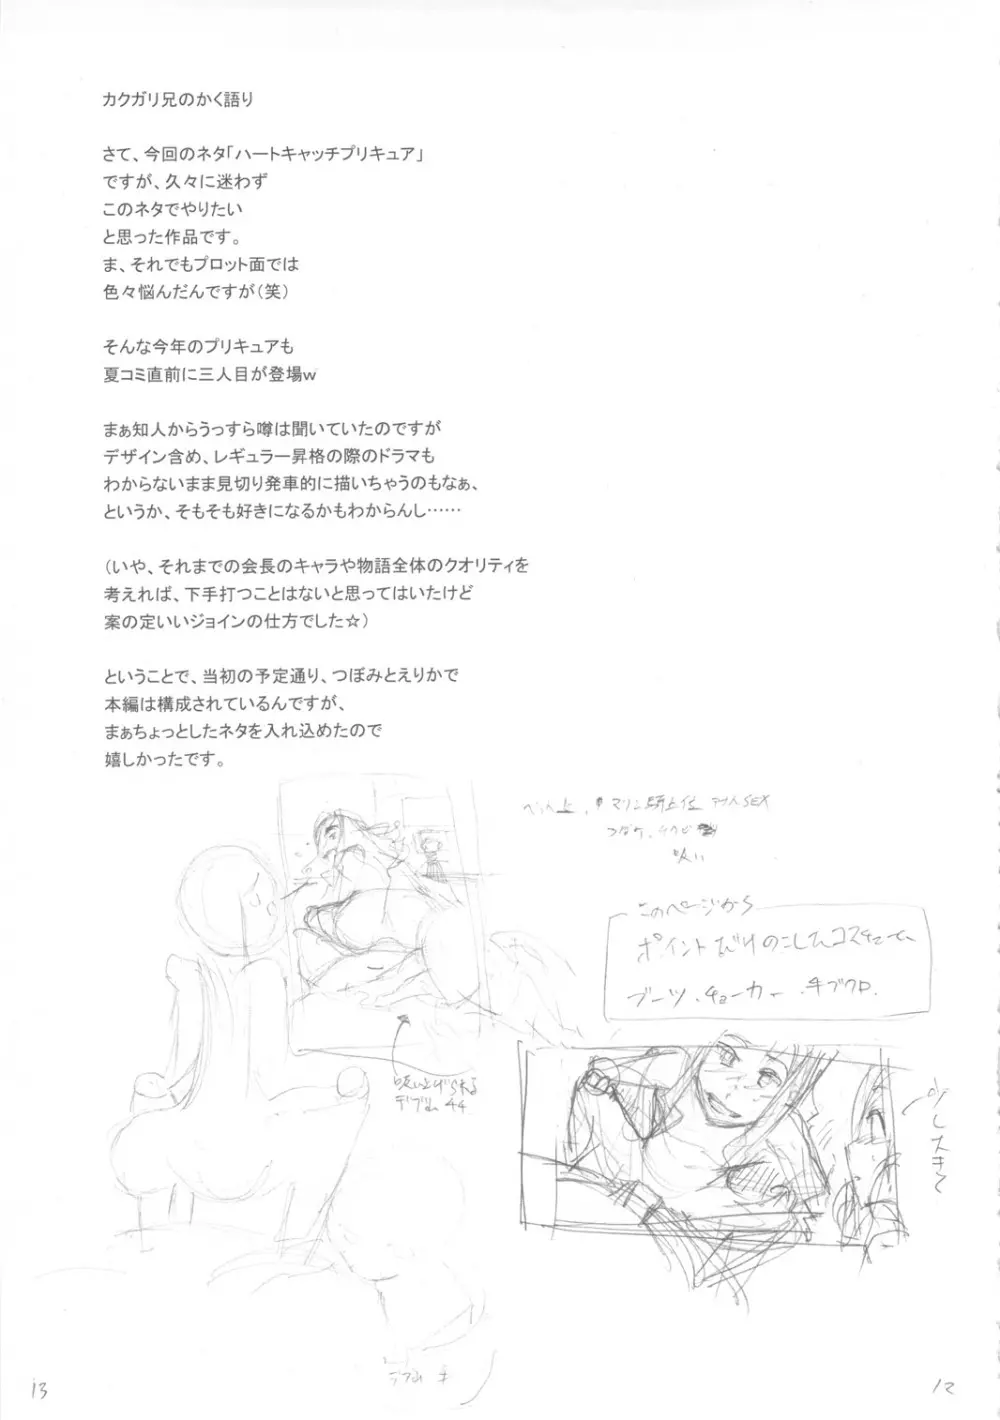 カクガリ兄のかく語り
さて、今回のネタ「ハートキャッチプリキュア」
ですが、久々に迷わず
このネタでやりたい
と思った作品です。
ま、それでもプロット面では
色々悩んだんですが（笑）
そんな今年のプリキュアも
夏コミ直前に三人目が登場ｗ
まぁ知人からうっすら噂は聞いていたのですが
デザイン含め、レギュラー昇格の際のドラマも
わからないまま見切り発車的に描いちゃうのもなぁ、
というか、そもそも好きになるかもわからんし……
（いや、それまでの会長のキャラや物語全体のクオリティを
考えれば、下手打つことはないと思ってはいたけど
案の定いいジョインの仕方でした☆）
ということで、当初の予定通り、つぼみとえりかで
本編は構成されているんですが、
まぁちょっとしたネタを入れ込めたので
嬉しかったです。
このページから
ブーツ、チョーカー、手ブクロ.
少し大きく
13
12